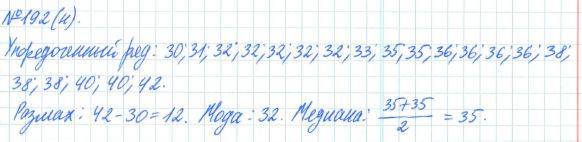 №192(н).
Упорядоченный ряд: 30; 31; 32; 32; 32; 32; 32; 33; 35; 35; 36; 36; 36; 36; 38;
38; 38; 40; 40; 42.
Размах: 42-30=12. Мода: 32. Медиана: (35+35)/2 = 35.